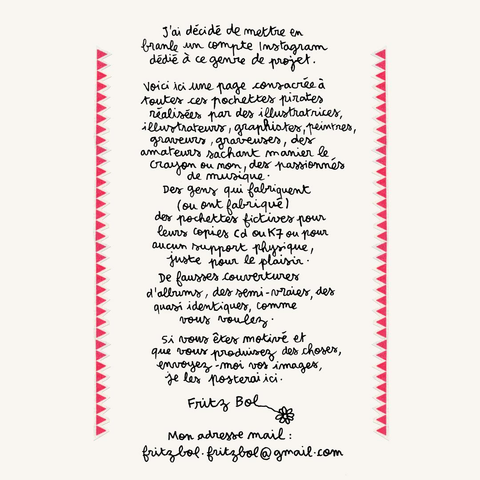 J'ai décidé de mettre en
branle un compte Instagram
dédié à ce genre de projet.
Voici ici une page consacrée à
toutes ces pochettes pirates
réalisées par des illustratrices,
illustrateurs, graphistes, peintres,
graveurs, graveuses, des
amateurs sachant manier le
crayon ou non, des passionnés
de musique.
Des gens qui fabriquent
(ou ont fabriqué)
des pochettes fictives pour
leurs copies Cd ou K7 ou pour
aucun support physique,
juste pour le plaisir.
De fausses couvertures
d'albums, des semi-vraies, des
quasi identiques, comme
vous voulez.
Si vous êtes motivé et
que vous produisez des choses,
envoyez-moi vos images,
je les posterai ici.
Fritz Bol
Mon adresse mail :
fritzbol.fritzbol@gmail.com